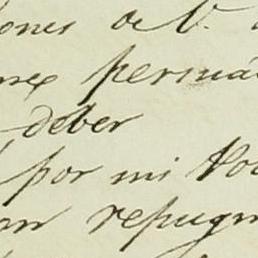 ones de V.
nex persua
deber
por mi vo
an repugn